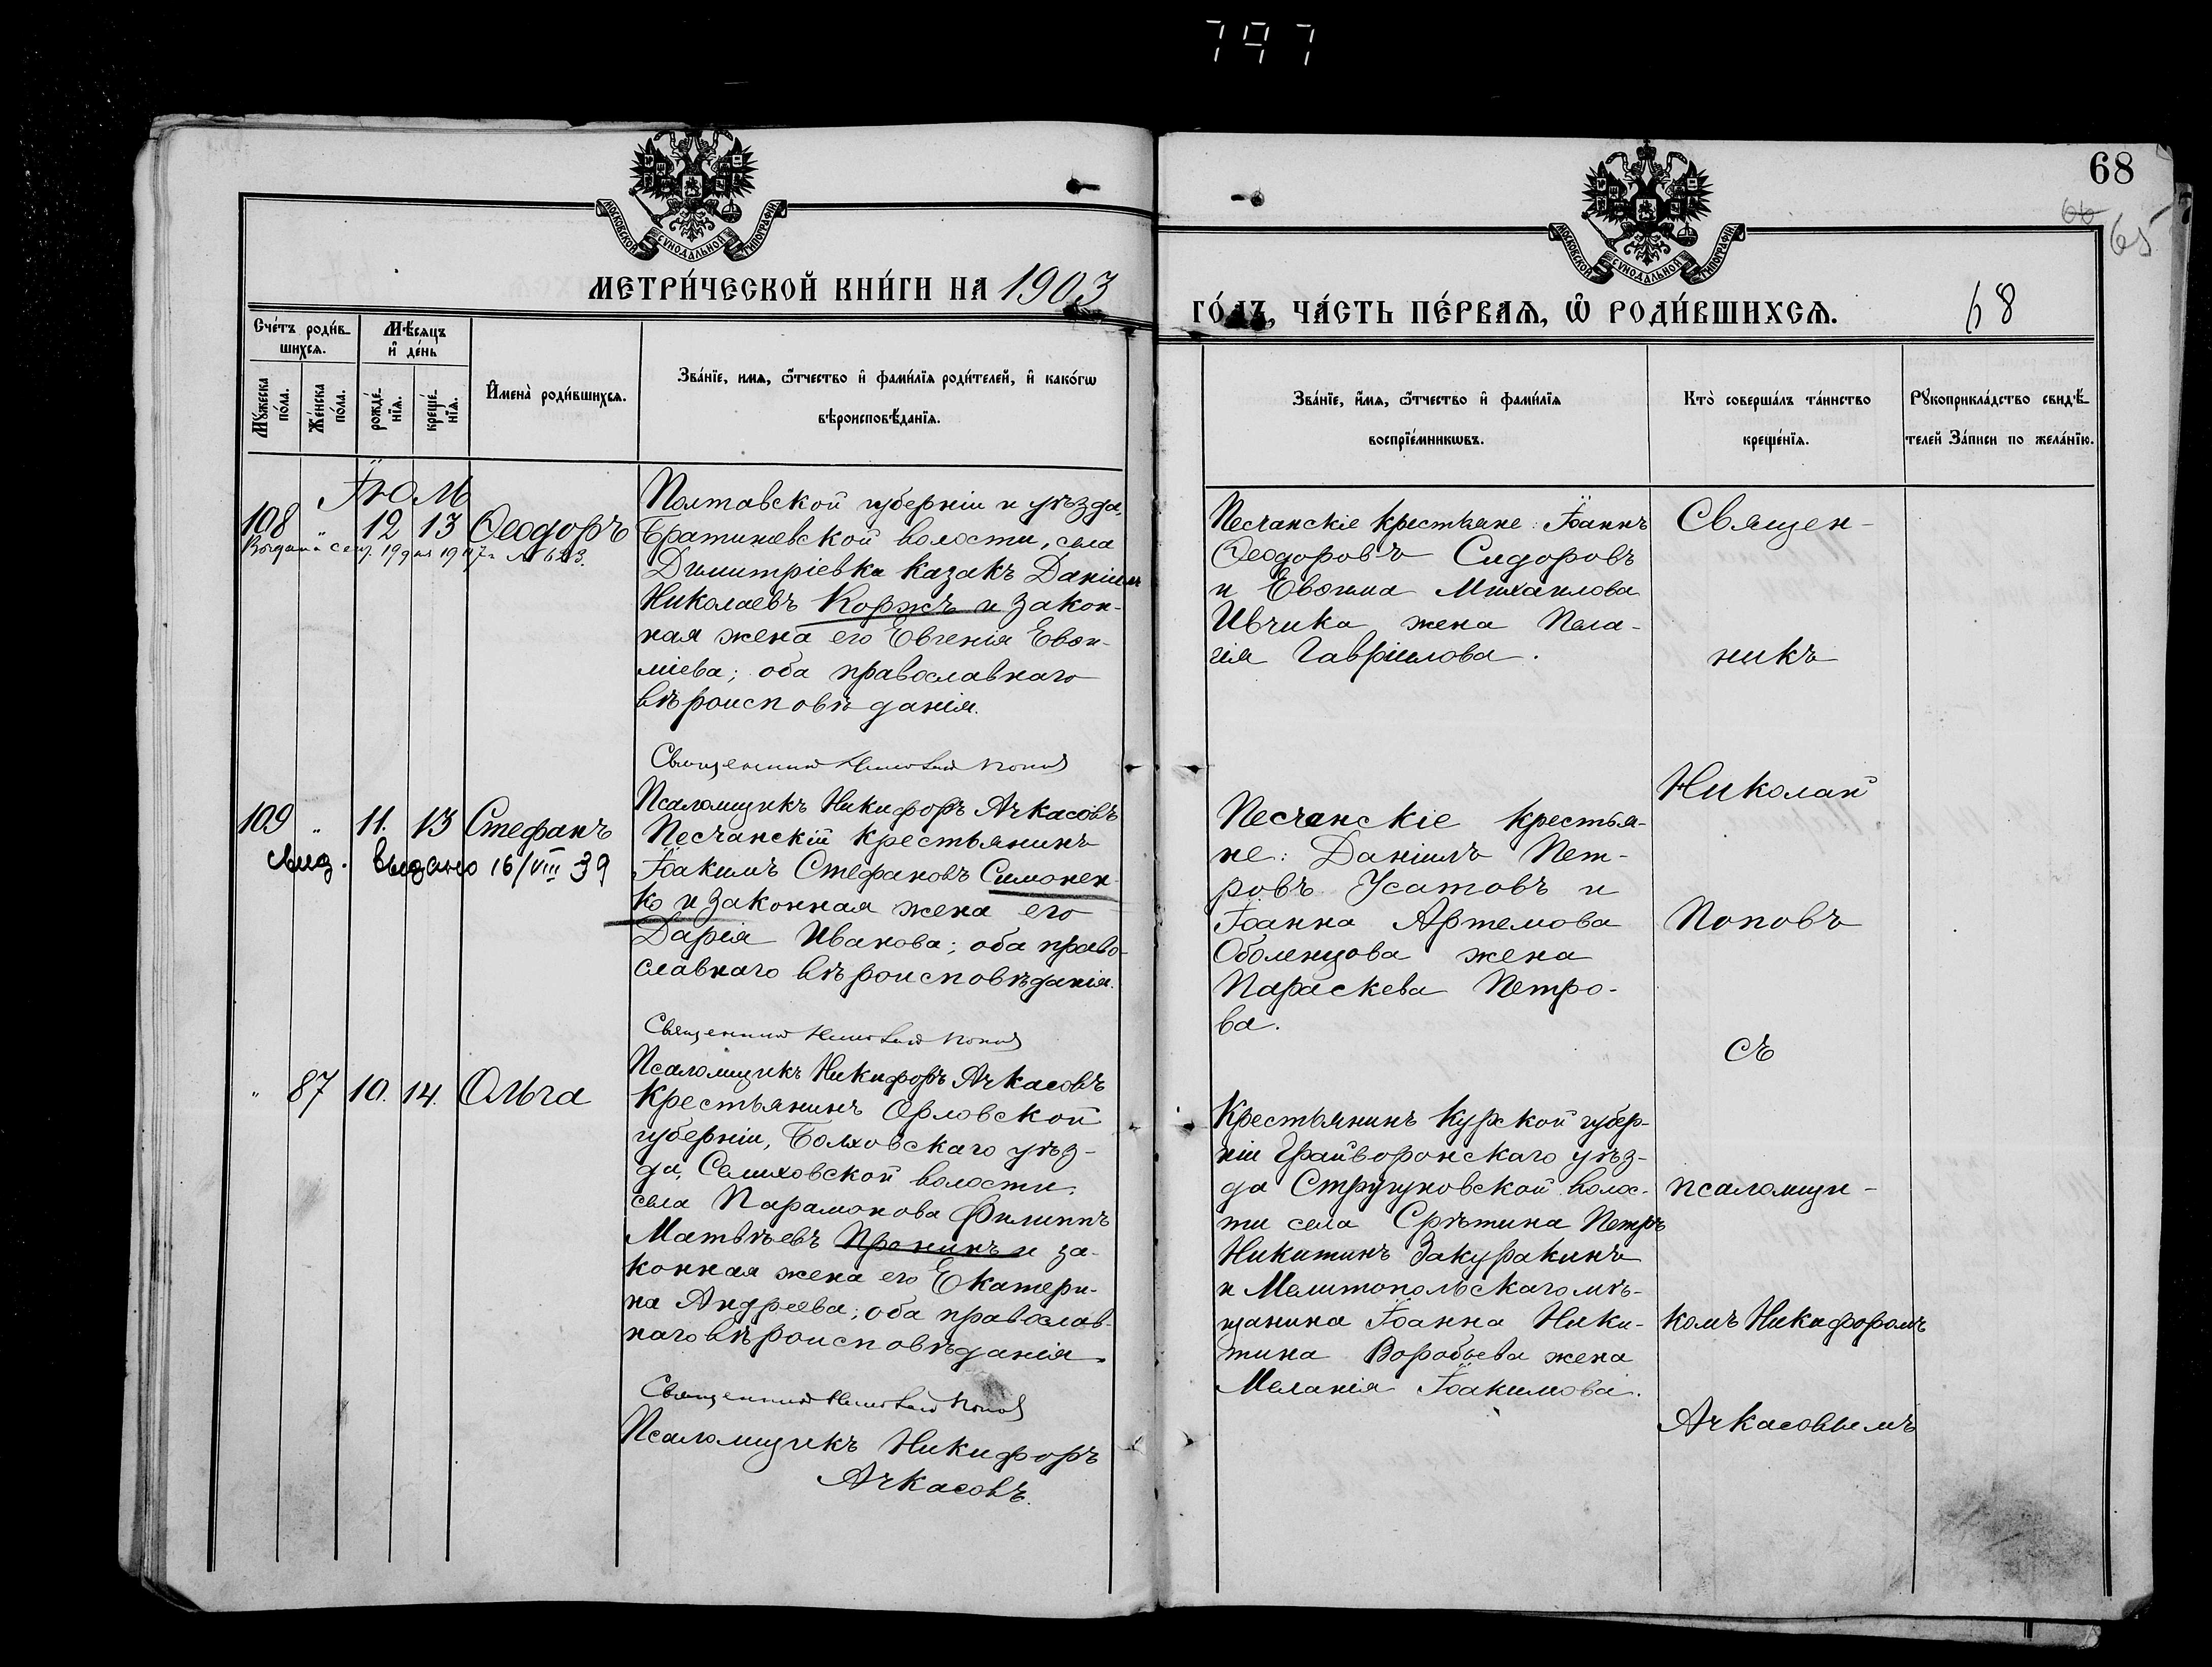 797
68
66
65
МОСКОВСКОЙ СѴНОДАЛЬНОЙ ТИПОГРАФІИ
МОСКОВСКОЙ СѴНОДАЛЬНОЙ ТИПОГРАФІИ
МЕТРИ́ЧЕСКОЙ КНИ́ГИ НА 1903
ГО́ДЪ, ЧА́СТЬ ПЕ́РВАѦ, Ѡ РОДИ́ВШИХСѦ.
68
Сче́тъ роди́в-
шихсѧ.
Мѣ́сѧцъ
и де́нь
Мꙋ́жеска
по́ла.
Же́нска
по́ла.
рожде́-
нїѧ.
креще́-
нїѧ.
Имена̀ роди́вшихсѧ.
Зва́нїе, имѧ, ѻ҆́тчество и фами́лїѧ роди́телей, и како́гѡ
вѣроисповѣ́данїѧ.
Зва́нїе, и́мѧ, ѻ҆́тчество и фами́лїѧ
воспрїе́мникѡвъ.
Кто̀ соверша́лъ та́инство
креще́нїѧ.
Рꙋкоприкла́дство свидѣ́-
телей За́писи по жела́нїю.
Іюль
108 " 12 13 Ѳеодоръ
№ 623.
Полтавской губерніи и уѣзда,
волости, села
Димитріевка казакъ Даніилъ
Николаевъ Коржъ и закон-
ная жена его Евгенія Евѳи-
міева; оба православнаго
вѣроисповѣданія.
Священникъ Николай Поповъ
Псаломщикъ Никифоръ Ачкасовъ
Песчанскіе крестьяне: Іоаннъ
Ѳеодоровъ Сидоровъ
и Евѳима Михаилова
Ивчика жена Пела-
гія Гавріилова.
109 " 11. 13 Стефанъ
выдано 16/VIII 39
Песчанскій крестьянинъ
Іоакимъ Стефановъ Симонен-
ко и законная жена его
Дарія Иванова; оба право-
славнаго вѣроисповѣданія.
Священникъ Николай Поповъ
Псаломщикъ Никифоръ Ачкасовъ
Песчанскіе крестья-
не: Даніилъ Пет-
ровъ Усатовъ и
Іоанна Артемова
Оболенцова жена
Параскева Петро-
ва.
" 87 10. 14. Ольга
Крестьянинъ Орловской
губерніи, Болховскаго уѣз-
да, Селиховской волости,
села Парамонова Филиппъ
Матвѣевъ Пронинъ и за-
конная жена его Екатери-
на Андреева; оба православ-
наго вѣроисповѣданія.
Священникъ Николай Поповъ
Псаломщикъ Никифоръ
Ачкасовъ.
Крестьянинъ Курской губер-
ніи Грайворонскаго уѣз-
да Стригуновской волос-
ти села Срѣтина Петръ
Никитинъ Закуракинъ
и Мелитопольскаго мѣ-
щанина Іоанна Ники-
тина Воробьева жена
Меланія Іоакимова.
Священ-
никъ
Николай
Поповъ
съ
псаломщи-
комъ Никифоромъ
Ачкасовымъ